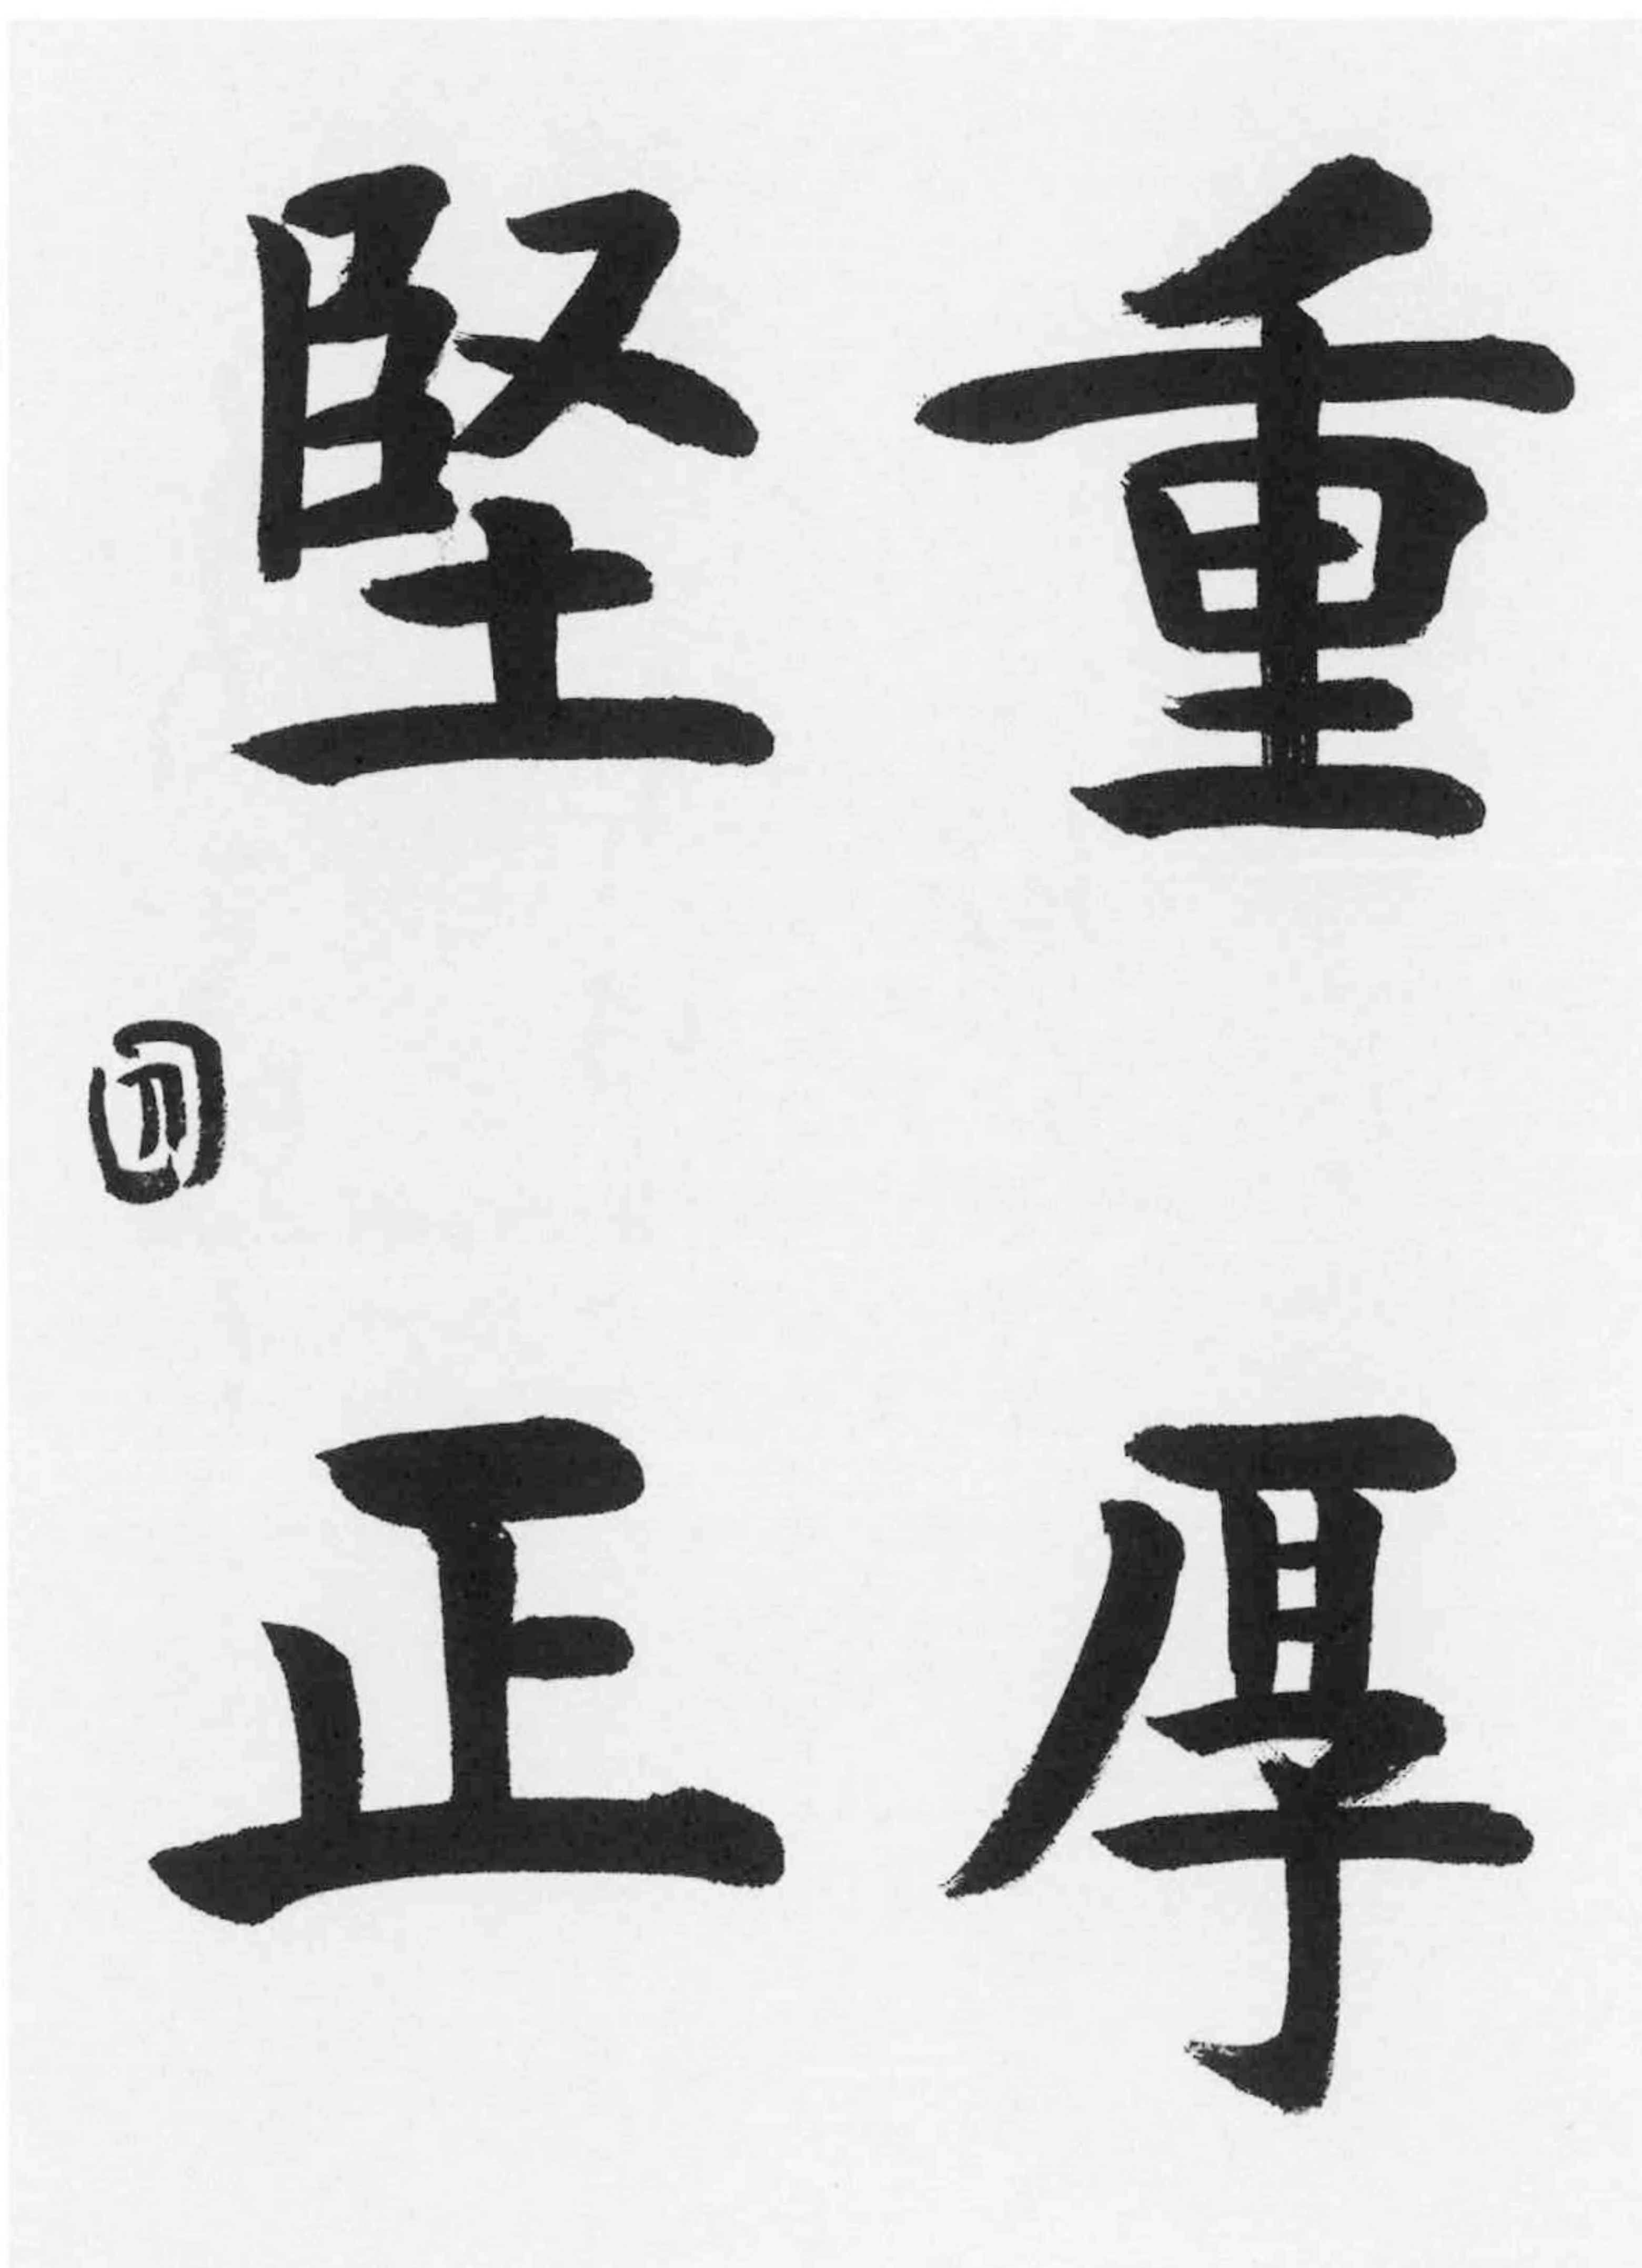 重厚
堅正